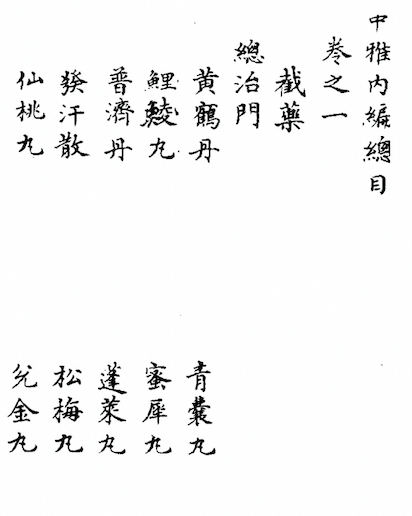 中雅内編總目
卷之一
截藥
總治門
黃鶴丹　青囊丸
鯉鯪丸　蜜犀丸
普濟丹　蓬萊丸
發汗散　松梅丸
仙桃丸　兌金丸